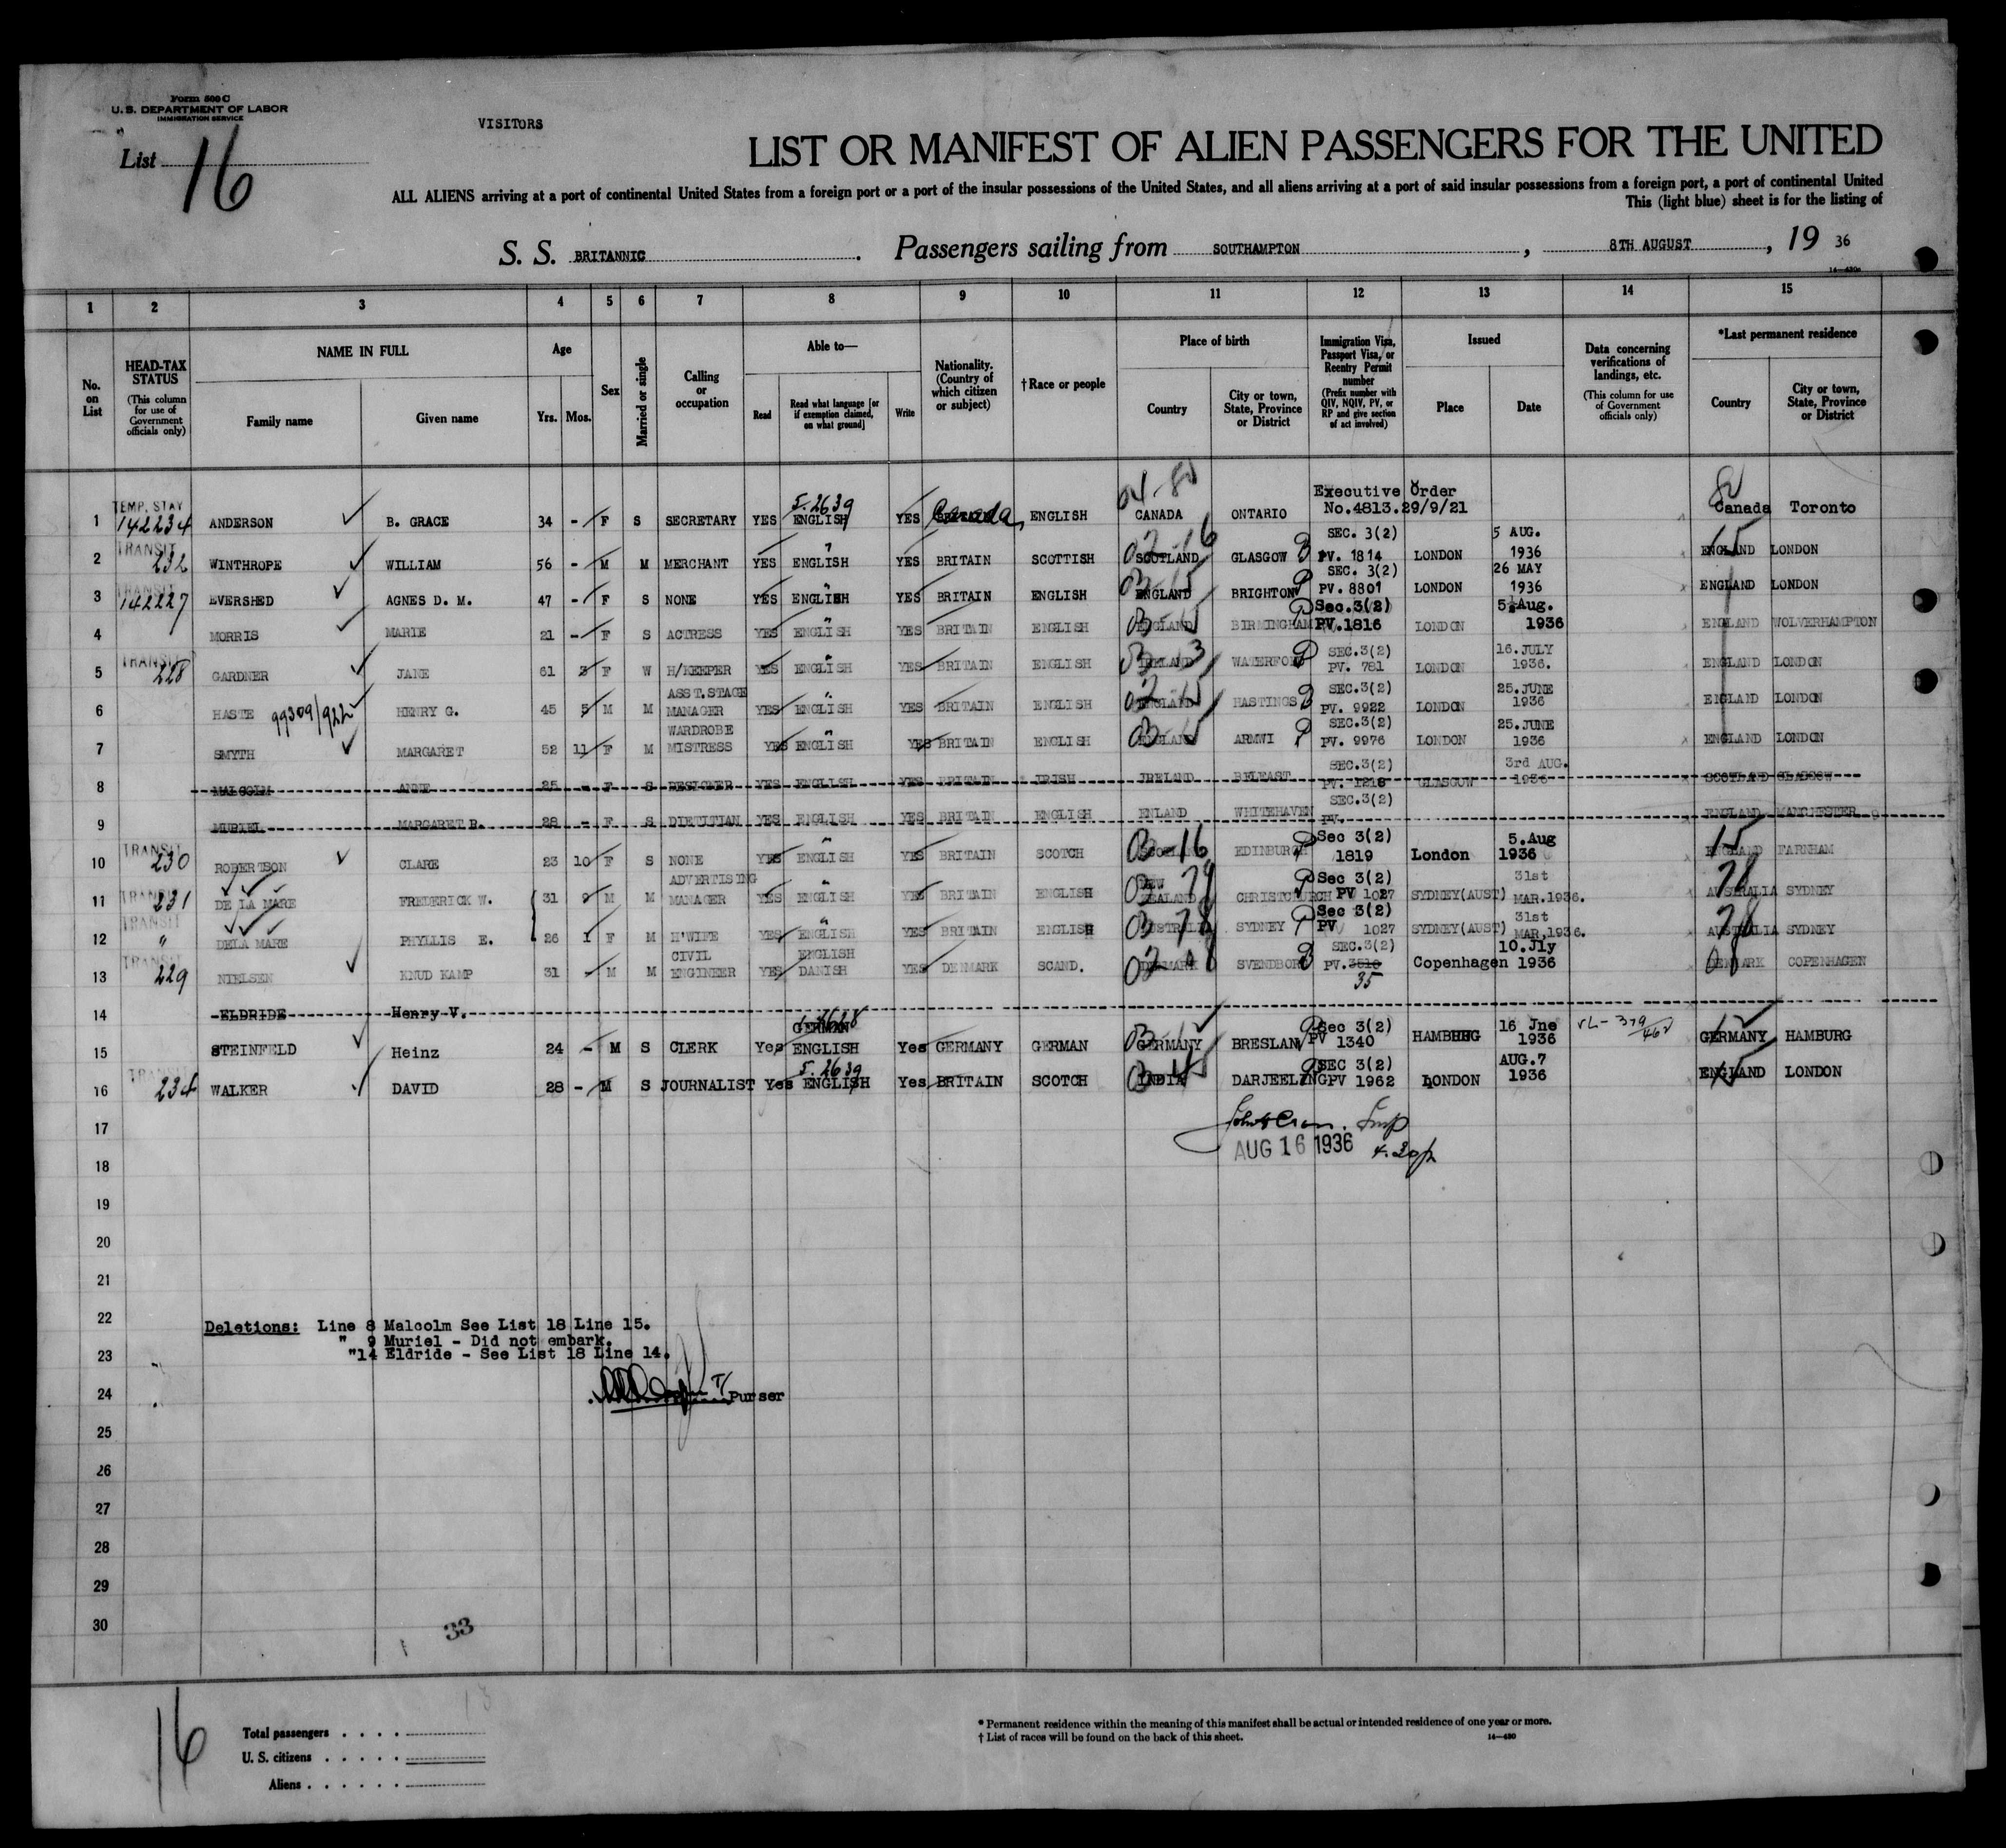 Form 500 C
U. S. DEPARTMENT OF LABOR
IMMIGRATION SERVICE
VISITORS
List 16
LIST OR MANIFEST OF ALIEN PASSENGERS FOR THE UNITED
ALL ALIENS arriving at a port of continental United States from a foreign port or a port of the insular possessions of the United States, and all aliens arriving at a port of said insular possessions from a foreign port, a port of continental United
This (light blue) sheet is for the listing of
S. S. BRITANNIC . Passengers sailing from SOUTHAMPTON , 8TH AUGUST , 19 36
14—430a
1 2 3 4 5 6 7 8 9 10 11 12 13 14 15
No. on List
HEAD-TAX STATUS (This column for use of Government officials only)
NAME IN FULL
Family name
Given name
Age
Yrs. Mos.
Sex
Married or single
Calling or occupation
Able to—
Read
Read what language [or if exemption claimed, on what ground]
Write
Nationality. (Country of which citizen or subject)
†Race or people
Place of birth
Country
City or town, State, Province or District
Immigration Visa, Passport Visa, or Reentry Permit number (Prefix number with QIV, NQIV, PV, or RP and give section of act involved)
Issued
Place
Date
Data concerning verifications of landings, etc. (This column for use of Government officials only)
*Last permanent residence
Country
City or town, State, Province or District
1 TEMP. STAY 142234 ANDERSON B. GRACE 34 - F S SECRETARY YES 5.2639 ENGLISH YES Canada ENGLISH 04-80 CANADA ONTARIO Executive Order No.4813.29/9/21 80 Canada Toronto
2 TRANSIT 232 WINTHROPE WILLIAM 56 - M M MERCHANT YES ENGLISH YES BRITAIN SCOTTISH SCOTLAND GLASGOW SEC. 3(2) PV. 1814 LONDON 5 AUG. 1936 ENGLAND LONDON
3 TRANSIT 142227 EVERSHED AGNES D. M. 47 - F S NONE YES ENGLISH YES BRITAIN ENGLISH ENGLAND BRIGHTON SEC. 3(2) PV. 8801 LONDON 26 MAY 1936 ENGLAND LONDON
4 MORRIS MARIE 21 - F S ACTRESS YES ENGLISH YES BRITAIN ENGLISH ENGLAND BIRMINGHAM Sec.3(2) PV.1816 LONDON 5 Aug. 1936 ENGLAND WOLVERHAMPTON
5 TRANSIT 228 GARDNER JANE 61 3 F W H/KEEPER YES ENGLISH YES BRITAIN ENGLISH IRELAND WATERFORD SEC.3(2) PV. 781 LONDON 16.JULY 1936. ENGLAND LONDON
6 HASTE 99309/922 HENRY G. 45 5 M M ASST.STAGE MANAGER YES ENGLISH YES BRITAIN ENGLISH ENGLAND HASTINGS SEC.3(2) PV. 9922 LONDON 25.JUNE 1936 ENGLAND LONDON
7 SMYTH MARGARET 52 11 F M WARDROBE MISTRESS YES ENGLISH YES BRITAIN ENGLISH ENGLAND ARMWI SEC.3(2) PV. 9976 LONDON 25.JUNE 1936 ENGLAND LONDON
8 MALCOLM ANNE 25 - F S DESIGNER YES ENGLISH YES BRITAIN IRISH IRELAND BELFAST SEC.3(2) PV. 1218 GLASGOW 3rd AUG. 1936 SCOTLAND GLASGOW
9 MURIEL MARGARET R. 28 - F S DIETITIAN YES ENGLISH YES BRITAIN ENGLISH ENLAND WHITEHAVEN SEC.3(2) PV. ENGLAND MANCHESTER
10 TRANSIT 230 ROBERTSON CLARE 23 10 F S NONE YES ENGLISH YES BRITAIN SCOTCH 03-16 EDINBURGH Sec 3(2) 1819 London 5.Aug 1936 15 ENGLAND FARNHAM
11 TRANSIT 231 DE LA MARE FREDERICK W. 31 9 M M ADVERTISING MANAGER YES ENGLISH YES BRITAIN ENGLISH NEW ZEALAND CHRISTCHURCH Sec 3(2) PV 1027 SYDNEY(AUST) 31st MAR.1936. AUSTRALIA SYDNEY
12 TRANSIT " DELA MARE PHYLLIS E. 26 1 F M H'WIFE YES ENGLISH YES BRITAIN ENGLISH AUSTRALIA SYDNEY Sec 3(2) PV 1027 SYDNEY(AUST) 31st MAR,1936. AUSTRALIA SYDNEY
13 TRANSIT 229 NIELSEN KNUD KAMP 31 - M M CIVIL ENGINEER YES ENGLISH DANISH YES DENMARK SCAND. DENMARK SVENDBORG SEC.3(2) PV.3510 35 Copenhagen 10.Jly 1936 DENMARK COPENHAGEN
14 ELDRIDE Henry V.
15 STEINFELD Heinz 24 - M S CLERK Yes GERMAN ENGLISH Yes GERMANY GERMAN GERMANY BRESLAN Sec 3(2) PV 1340 HAMBURG 16 Jne 1936 GERMANY HAMBURG
16 TRANSIT 234 WALKER DAVID 28 - M S JOURNALIST Yes 5.2639 ENGLISH Yes BRITAIN SCOTCH INDIA DARJEELING SEC 3(2) PV 1962 LONDON AUG.7 1936 ENGLAND LONDON
17
AUG 16 1936 4.30p
18
19
20
21
22
Deletions: Line 8 Malcolm See List 18 Line 15.
" 9 Muriel - Did not embark.
23
"14 Eldride - See List 18 Line 14.
24
Purser
25
26
27
28
29
30
33
16
13
Total passengers
U. S. citizens
Aliens
* Permanent residence within the meaning of this manifest shall be actual or intended residence of one year or more.
† List of races will be found on the back of this sheet.
14—430